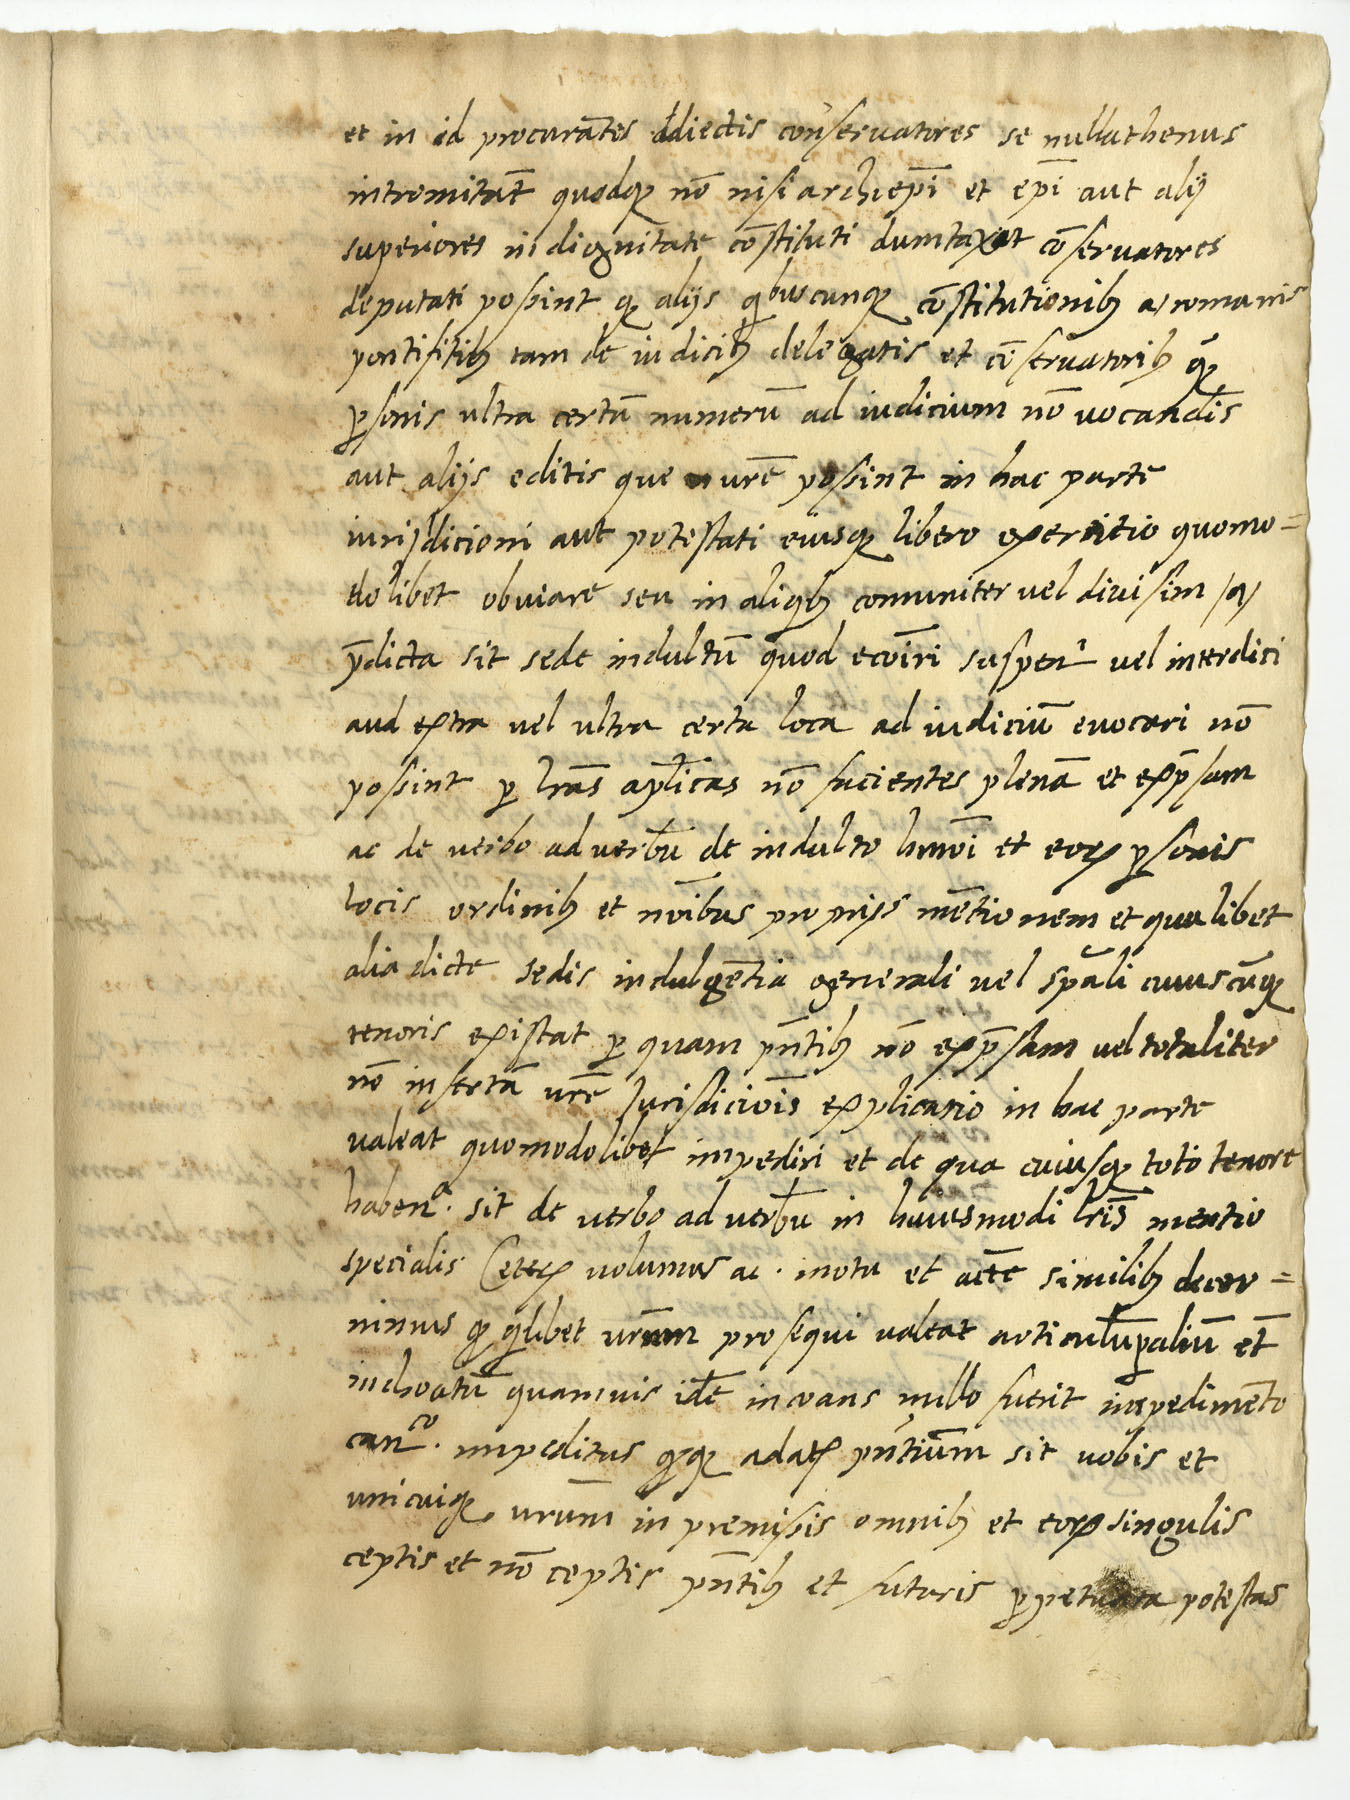 et in id procurātes ddiectis conservatores se nullathenus
intromitāt quodqȝ nō nisi archiep̄i et ep̄i aut alij
superiores in dignitate cōstituti dumtaxat cōservatores
deputati possint qȝ alijs qibuscunqȝ cōstitutionibȝ a romanis
pontifitibȝ tam de iudicibȝ delegatis et cōservatoribȝ qȝ̄
ꝑsonis ultra certū numerū ad iudicium nō vocandis
aut alijs editis que vrē possint in hac parte
iurisdicioni aut potestati eiusqȝ libero exercitio quomo=
dolibet obviare seu in aliqibȝ comuniter vel divisim a
p̄dicta sit sede indultū quod excōiri suspen̄ vel interdici
aud extra vel ultra certa loca ad iudiciū evocari nō
possint ꝑ lrās apl̄icas nō facientes plenā et exp̄sam
ac de verbo ad verbū de indulto hmōi et eorꝝ ꝑsonis
locis ordinibȝ et nōibus propriis mētionem et qualibet
alia dicte sedis indulgētia generali vel spāli cuiuscūqȝ
tenoris existat ꝑ quam pn̄tibȝ nō exp̄sam vel totaliter
nō insertā vrē Jurisdiciōis explicatio in hac parte
valeat quomodolibet impediri et de qua cuiusqȝ toto tenore
haben̄ᵃ. sit de verbo ad verbū in huiusmodi lrīs mentio
specialis Ceterꝝ volumus ac . motu et auctē similibȝ decer=
nimus qȝ qilibet vrūm prosequi valeat articulū ꝑ aliū et̄
inchoatū quamvis idē incoans nullo fuerit impedimēto
canᶜᵒ. impeditus qȝqȝ adatꝝ pn̄tium sit vobis et
unicuiqȝ vrūm in premissis omnibȝ et eorꝝ singulis
ceptis et nō ceptis pn̄tibȝ et futuris ꝑpetuata potestas